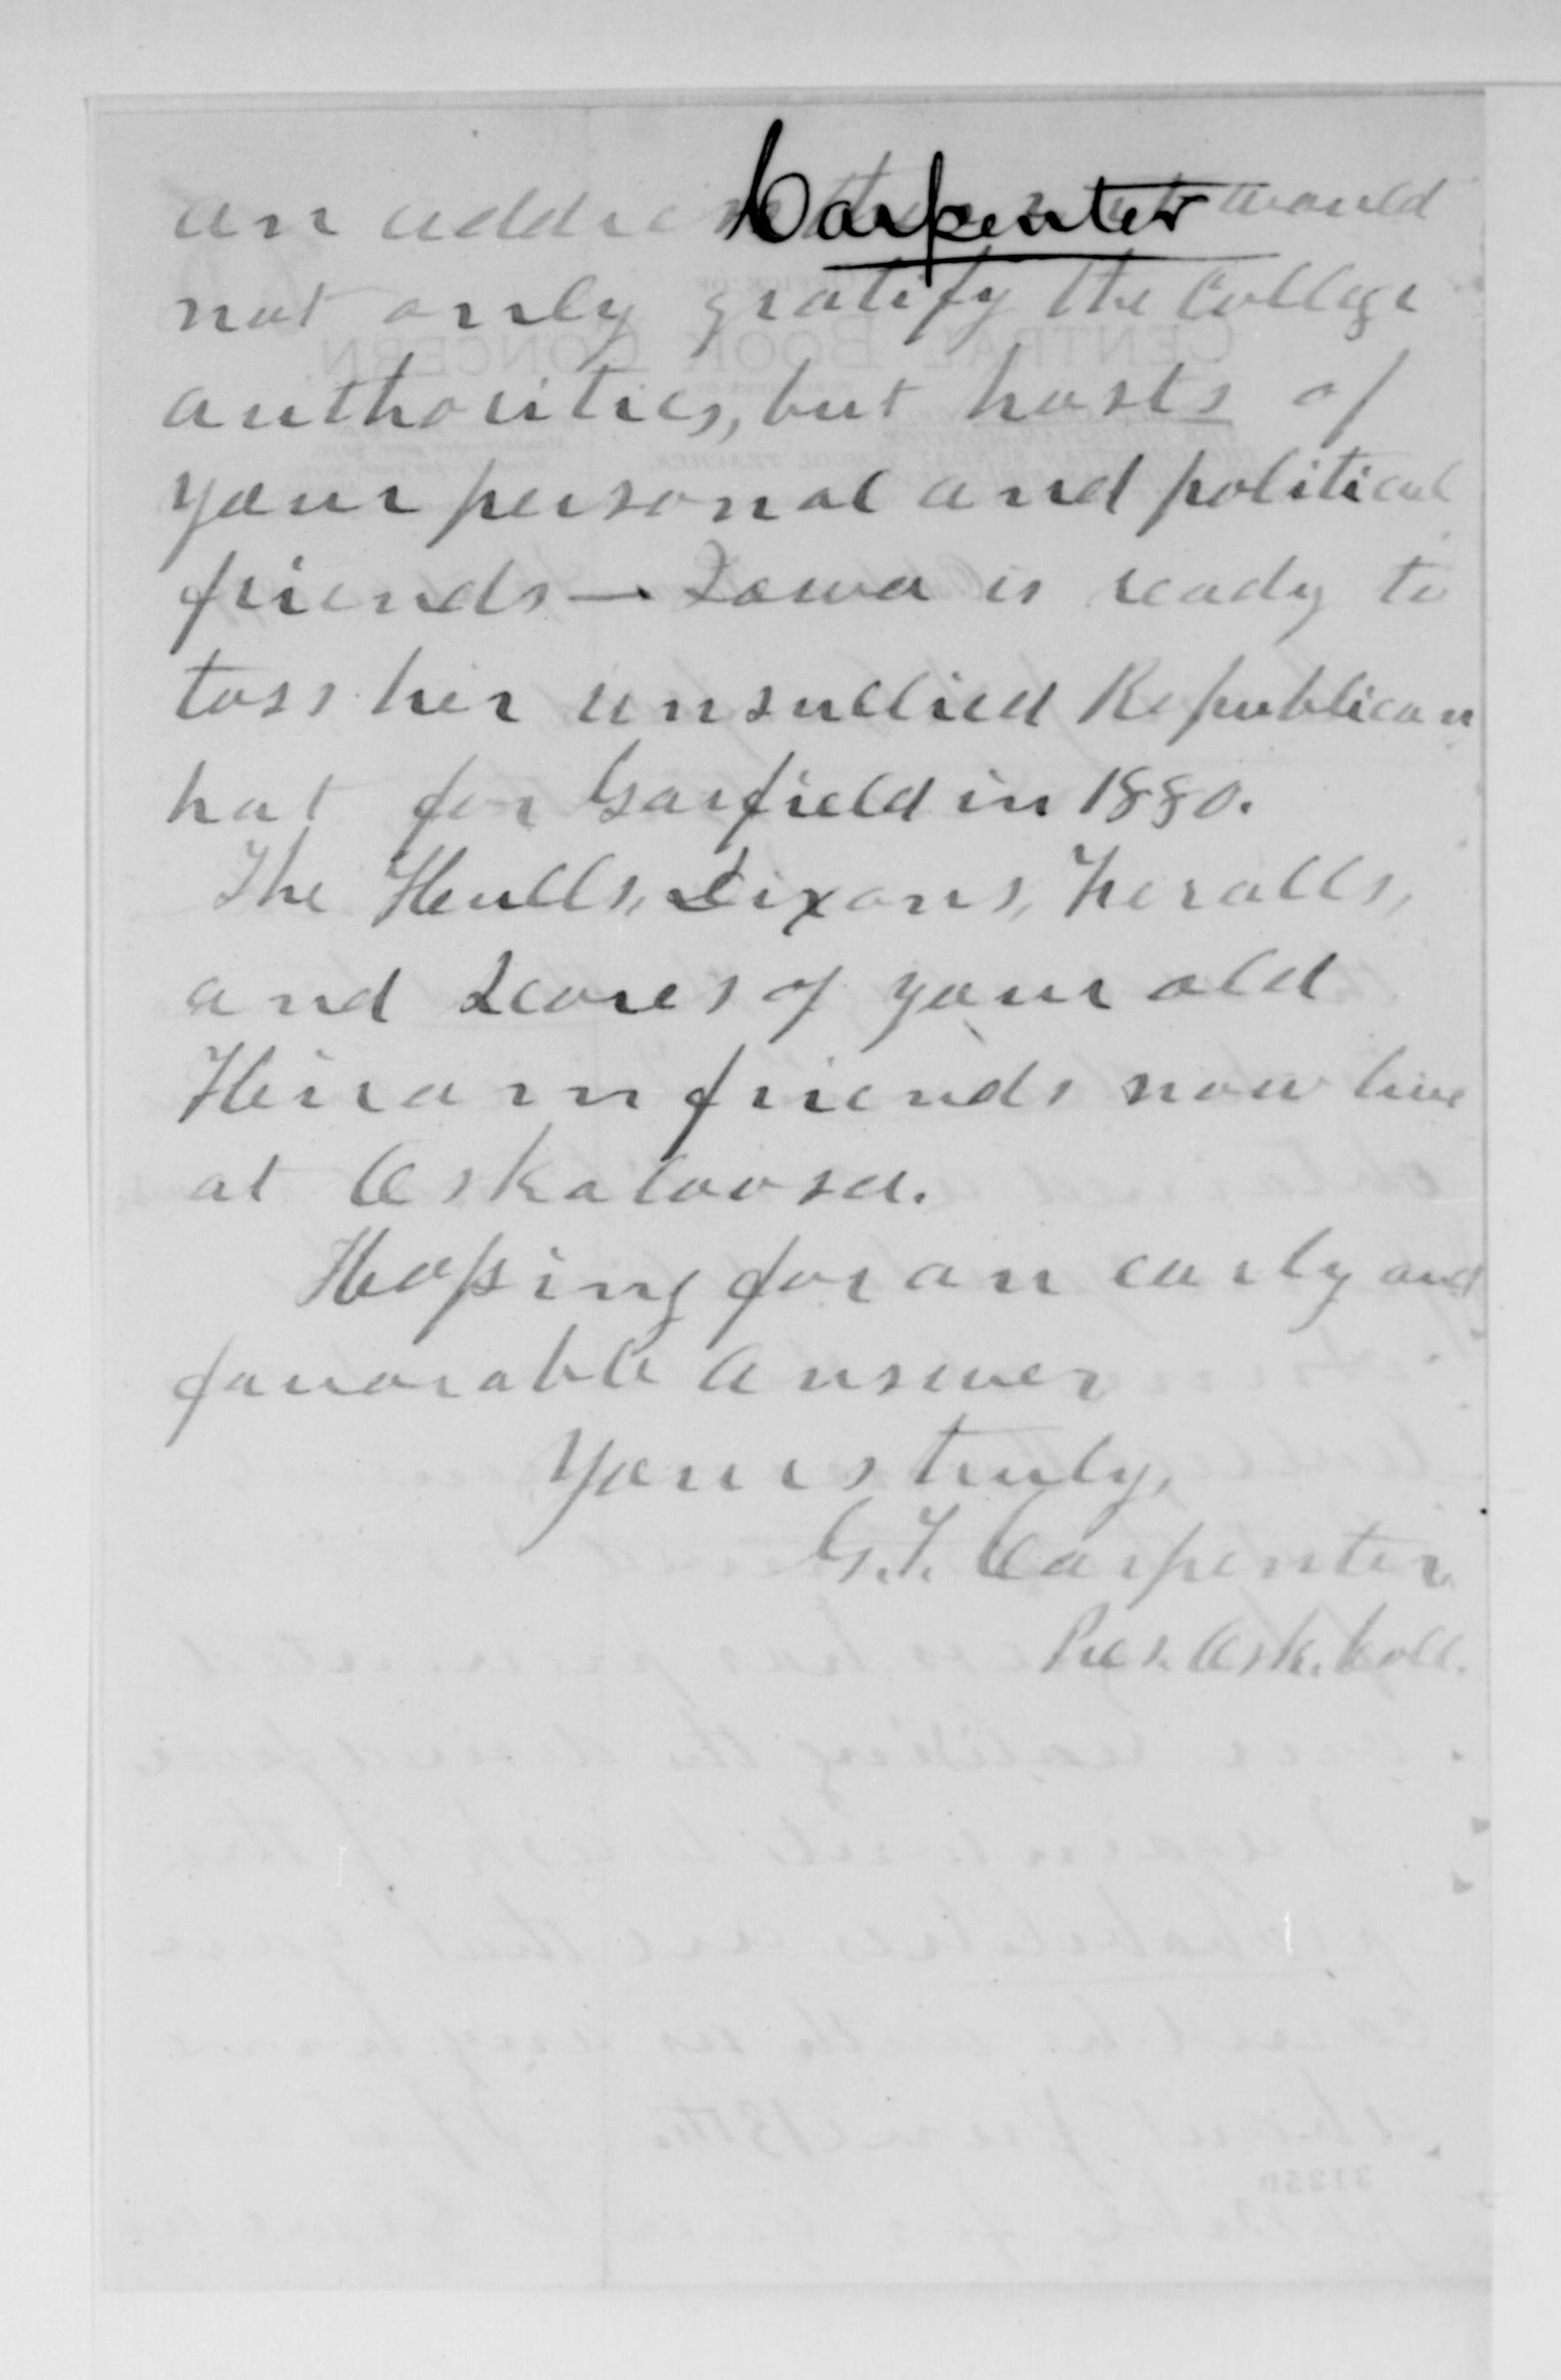 Carpenter
an address would
not only gratify the College
authorities, but hosts of
your personal and political
friends — Iowa is ready to
toss her unsullied Republican
hat for Garfield in 1880.
The Hulls, Dixons,
and Scores of your old
Hiram friends now live
at Oskaloosa.
Hoping for an early and
favorable answer
Yours truly,
G.T. Carpenter
Pres. Osk. Coll.